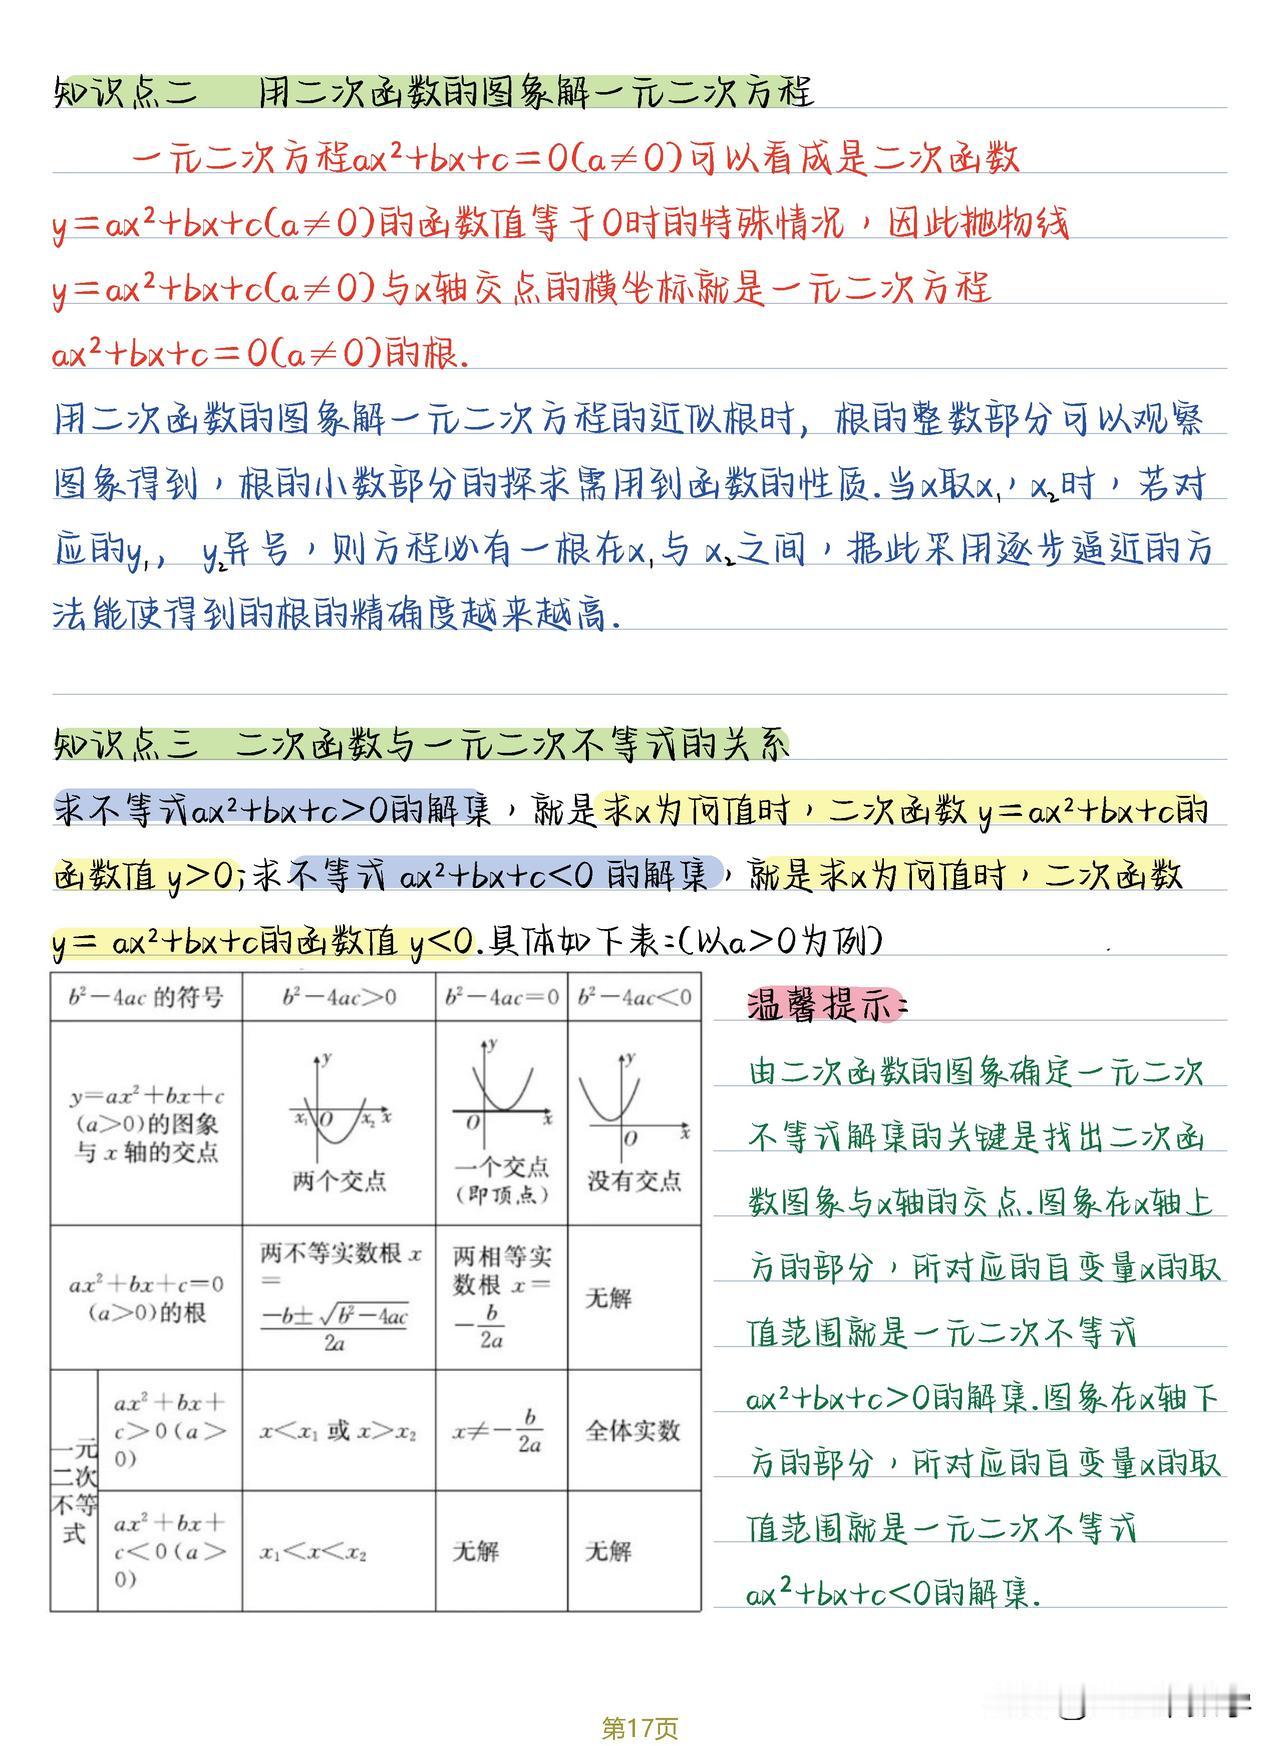 知识点二 用二次函数的图象解一元二次方程
一元二次方程ax²+bx+c=0(a≠0)可以看成是二次函数
y=ax²+bx+c(a≠0)的函数值等于0时的特殊情况，因此抛物线
y=ax²+bx+c(a≠0)与x轴交点的横坐标就是一元二次方程
ax²+bx+c=0(a≠0)的根.
用二次函数的图象解一元二次方程的近似根时, 根的整数部分可以观察
图象得到，根的小数部分的探求需用到函数的性质.当x取x₁，x₂时，若对
应的y₁, y₂异号，则方程必有一根在x₁与x₂之间，据此采用逐步逼近的方
法能使得到的根的精确度越来越高.
知识点三 二次函数与一元二次不等式的关系
求不等式ax²+bx+c>0的解集，就是求x为何值时，二次函数 y=ax²+bx+c的
函数值 y>0;求不等式 ax²+bx+c<0 的解集，就是求x为何值时，二次函数
y= ax²+bx+c的函数值 y<0.具体如下表:(以a>0为例)
b²-4ac 的符号 b²-4ac>0 b²-4ac=0 b²-4ac<0
y=ax²+bx+c
(a>0)的图象
与 x 轴的交点
y x₁ O x₂ x
两个交点
y O x
一个交点
(即顶点)
y O x
没有交点
ax²+bx+c=0
(a>0)的根
两不等实数根 x
=
-b±√b²-4ac
2a
两相等实
数根 x=
-b/2a
无解
一元
二次
不等
式
ax²+bx+
c>0(a>
0)
x<x₁ 或 x>x₂
x≠-b/2a
全体实数
ax²+bx+
c<0(a>
0)
x₁<x<x₂
无解
无解
温馨提示:
由二次函数的图象确定一元二次
不等式解集的关键是找出二次函
数图象与x轴的交点.图象在x轴上
方的部分，所对应的自变量x的取
值范围就是一元二次不等式
ax²+bx+c>0的解集.图象在x轴下
方的部分，所对应的自变量x的取
值范围就是一元二次不等式
ax²+bx+c<0的解集.
第17页